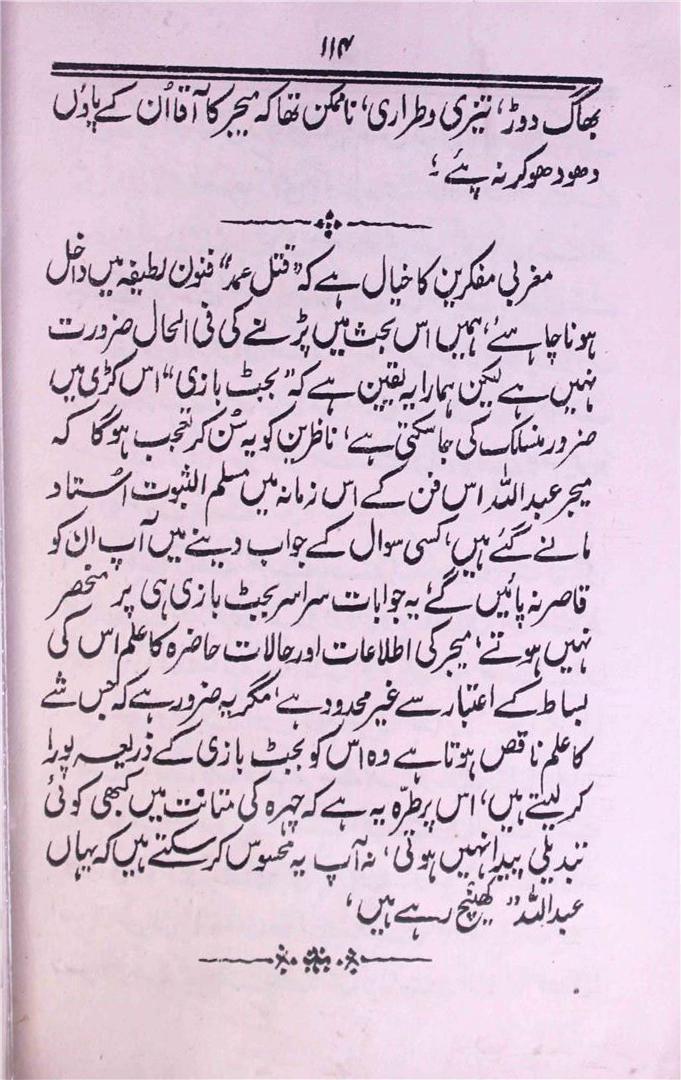 ۱۱۴
بھاگ دوڑ، تیزی و طراری، ناممکن تھا کہ میجر کا آقا اُن کے پاؤں
دھو دھو کر نہ پئے ؛
مغربی مفکرین کا خیال ہے کہ "قتل عمد" فنون لطیفہ میں داخل
ہونا چاہئے، ہمیں اس بحث میں پڑنے کی فی الحال ضرورت
نہیں ہے لیکن ہمارا یہ یقین ہے کہ "بجٹ بازی" اس کڑی میں
ضرور منسلک کی جا سکتی ہے، ناظرین کو یہ سُن کر تعجب ہوگا کہ
میجر عبداللہ اس فن کے اس زمانہ میں مسلم الثبوت اُستاد
مانے گئے ہیں، کسی سوال کے جواب دینے میں آپ ان کو
قاصر نہ پائیں گے، یہ جوابات سراسر بجٹ بازی ہی پر منحصر
نہیں ہوتے، میجر کی اطلاعات اور حالات حاضرہ کا علم اس کی
بساط کے اعتبار سے غیر محدود ہے، مگر یہ ضرور ہے کہ جس شے
کا علم ناقص ہوتا ہے وہ اس کو بجٹ بازی کے ذریعہ پورا
کر لیتے ہیں، اس پر طرّہ یہ ہے کہ چہرہ کی متانت میں کبھی کوئی
تبدیلی پیدا نہیں ہوتی، نہ آپ یہ محسوس کر سکتے ہیں کہ یہاں
عبداللہ "کھینچ رہے ہیں،